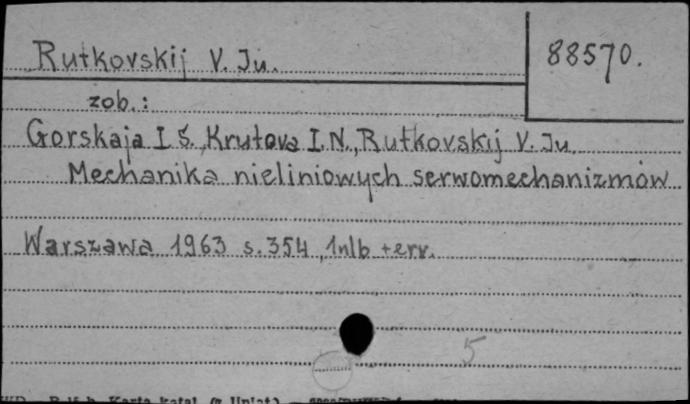 Rutkovskij V. Ju.
88570.
zob.:
Gorskaja I Ś., Krutova I. N., Rutkovskij V. Ju.
Mechanika nieliniowych serwomechanizmów
Warszawa 1963 s. 354, 1nlb + err.
5
Karta katal.